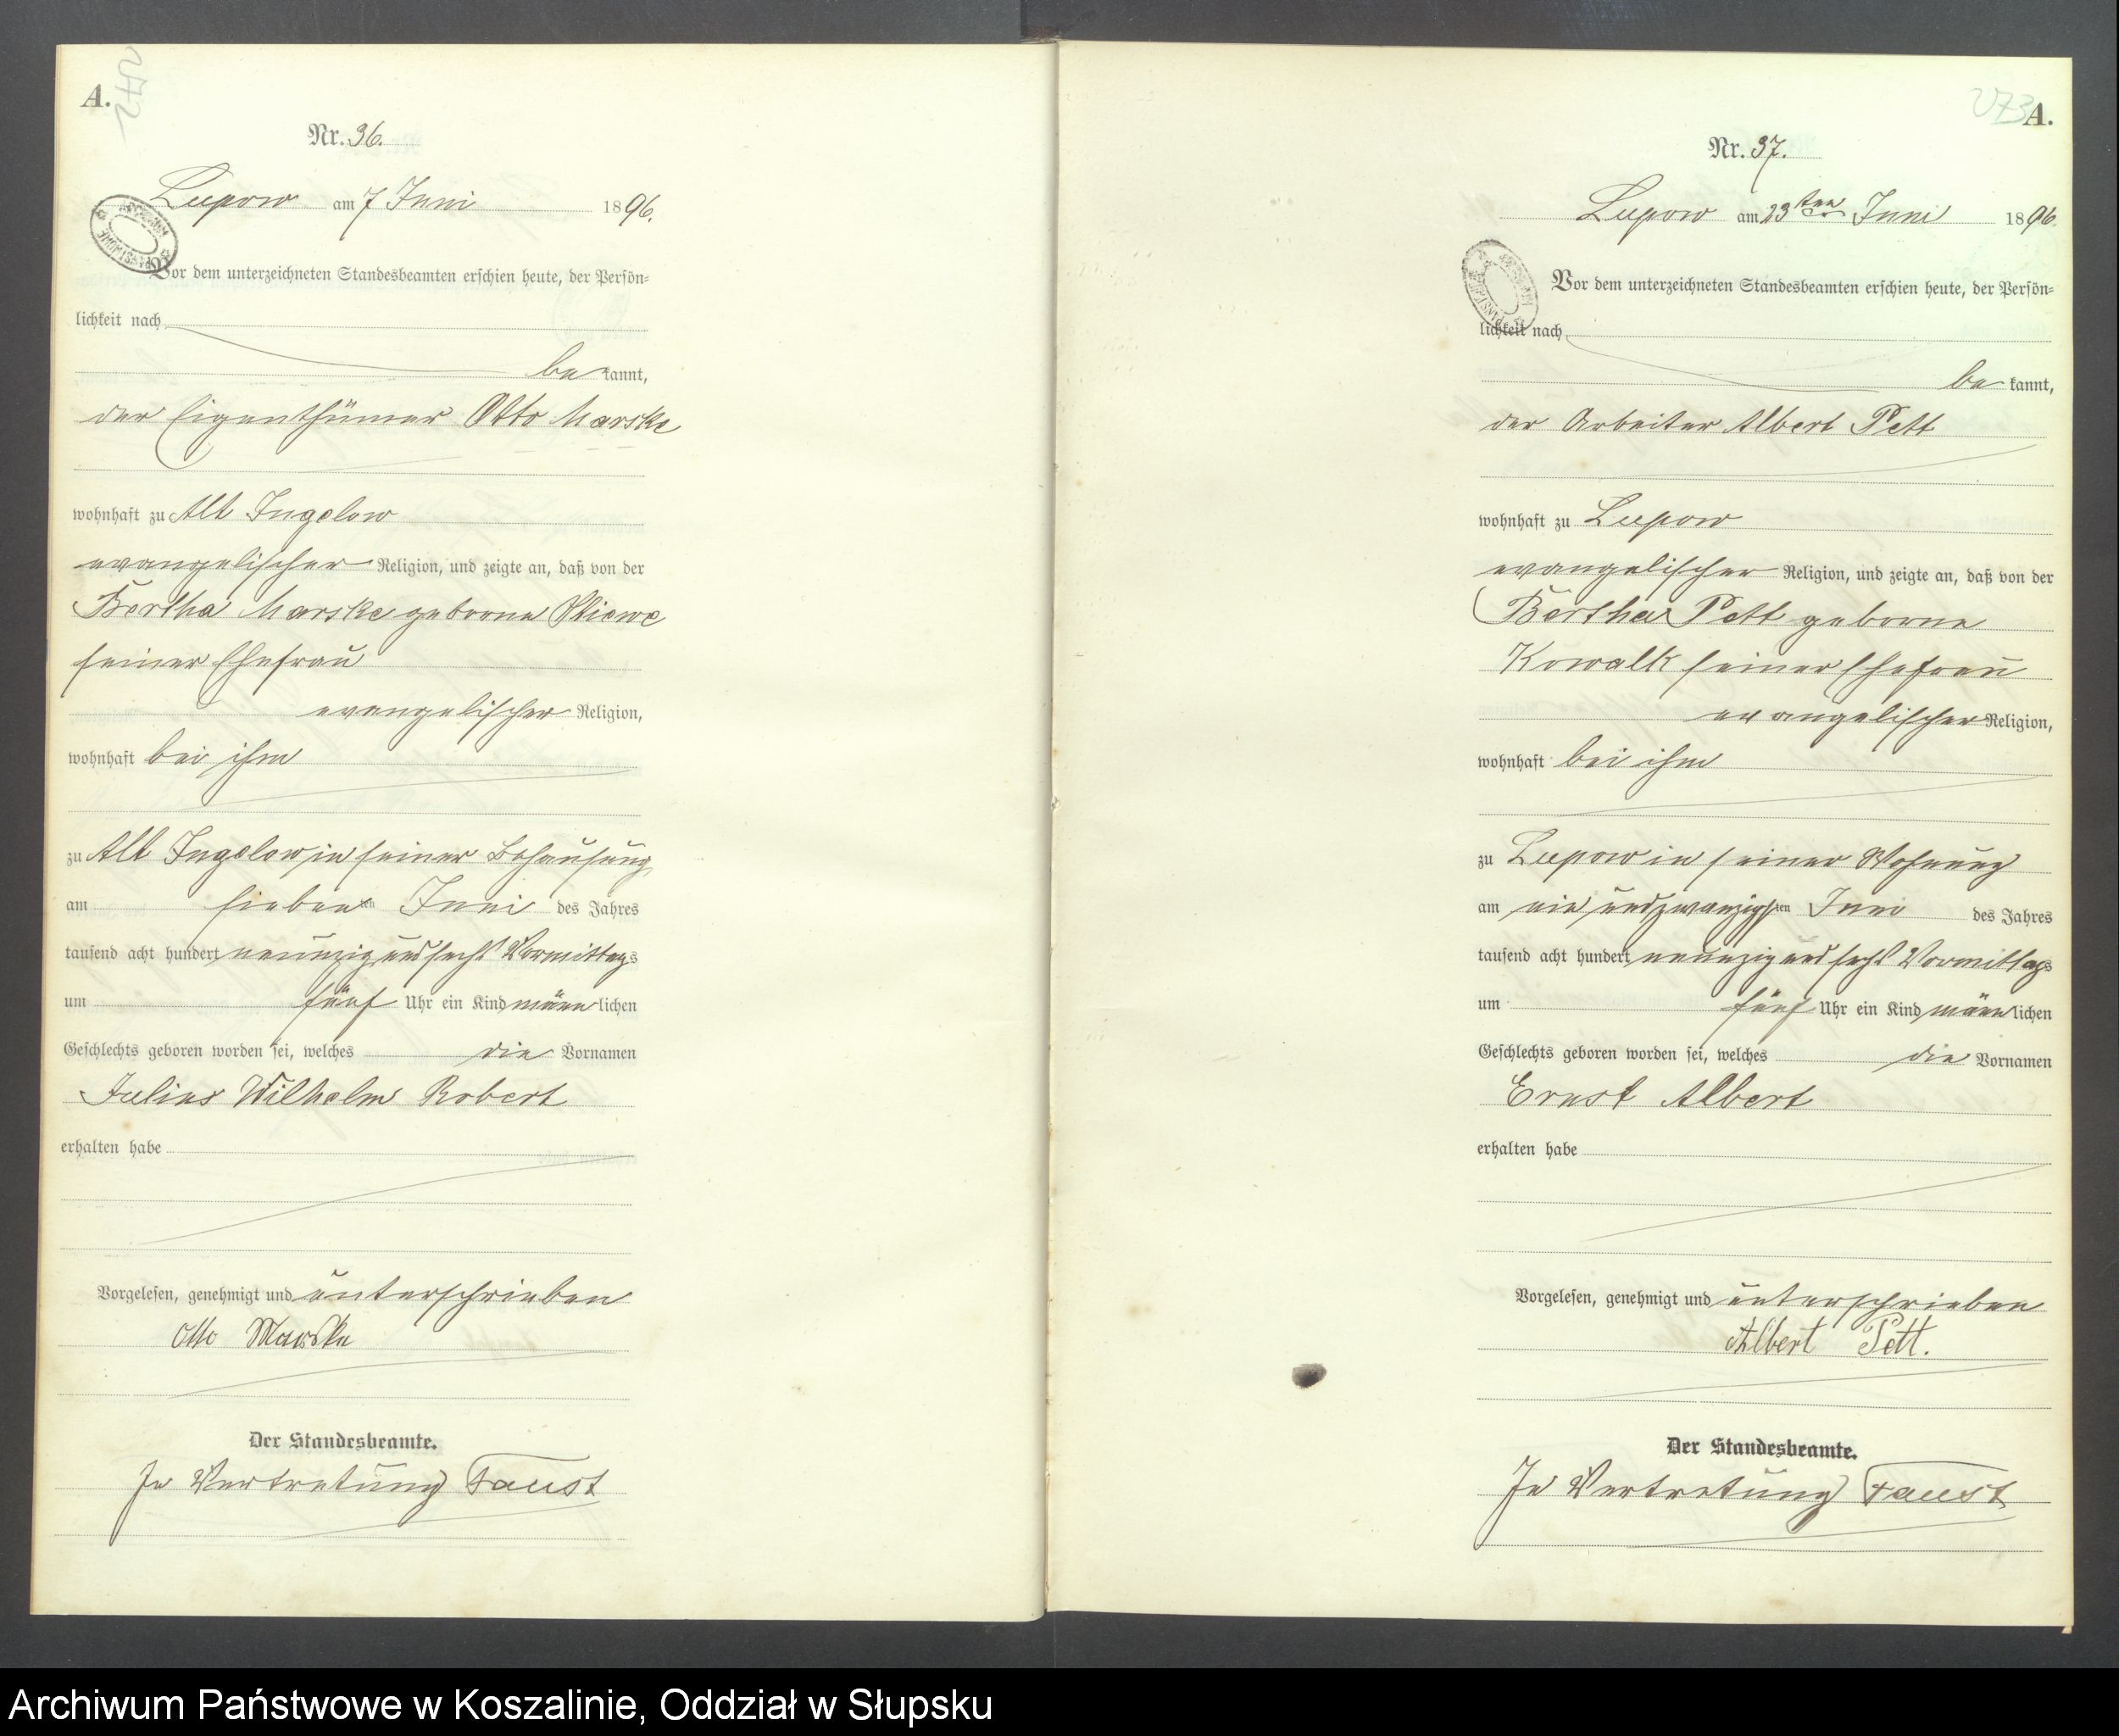 A.
272
Nr. 36.
Lupow am 7 Juni 1896.
Vor dem unterzeichneten Standesbeamten erschien heute, der Persön-
lichkeit nach
be kannt,
der Eigenthümer Otto Marske
wohnhaft zu Alt Jugelow
evangelischer Religion, und zeigte an, daß von der
Bertha Marske geborne
seiner Ehefrau
evangelischer Religion,
wohnhaft bei ihm
zu Alt Jugelow in seiner Behausung
am sieben ten Juni des Jahres
tausend acht hundert neunzig und sechs Vormittags
um fünf Uhr ein Kind männ lichen
Geschlechts geboren worden sei, welches die Vornamen
Julius Wilhelm Robert
erhalten habe
Vorgelesen, genehmigt und unterschrieben
Otto Marske
Der Standesbeamte.
In Vertretung Faust
273
A.
Nr. 37.
Lupow am 23ten Juni 1896.
Vor dem unterzeichneten Standesbeamten erschien heute, der Persön-
lichkeit nach
be kannt,
der Arbeiter Albert Pett
wohnhaft zu Lupow
evangelischer Religion, und zeigte an, daß von der
Bertha Pett geborne
Kowalk seiner Ehefrau
evangelischer Religion,
wohnhaft bei ihm
zu Lupow in seiner Wohnung
am ein und zwanzigsten Juni des Jahres
tausend acht hundert neunzig und sechs Vormittags
um fünf Uhr ein Kind männ lichen
Geschlechts geboren worden sei, welches die Vornamen
Ernst Albert
erhalten habe
Vorgelesen, genehmigt und unterschrieben
Albert Pett.
Der Standesbeamte.
In Vertretung Faust
Archiwum Państwowe w Koszalinie, Oddział w Słupsku